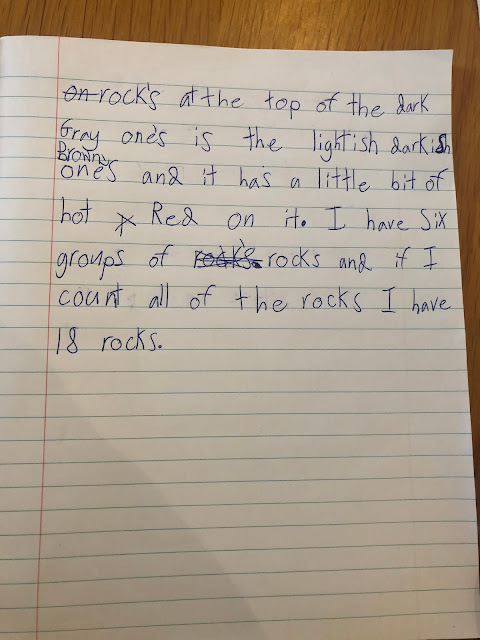 on rock's at the top of the dark
Gray one's is the lightish darkish
Browny
one's and it has a little bit of
hot Red on it. I have Six
groups of rock's rocks and if I
count all of the rocks I have
18 rocks.